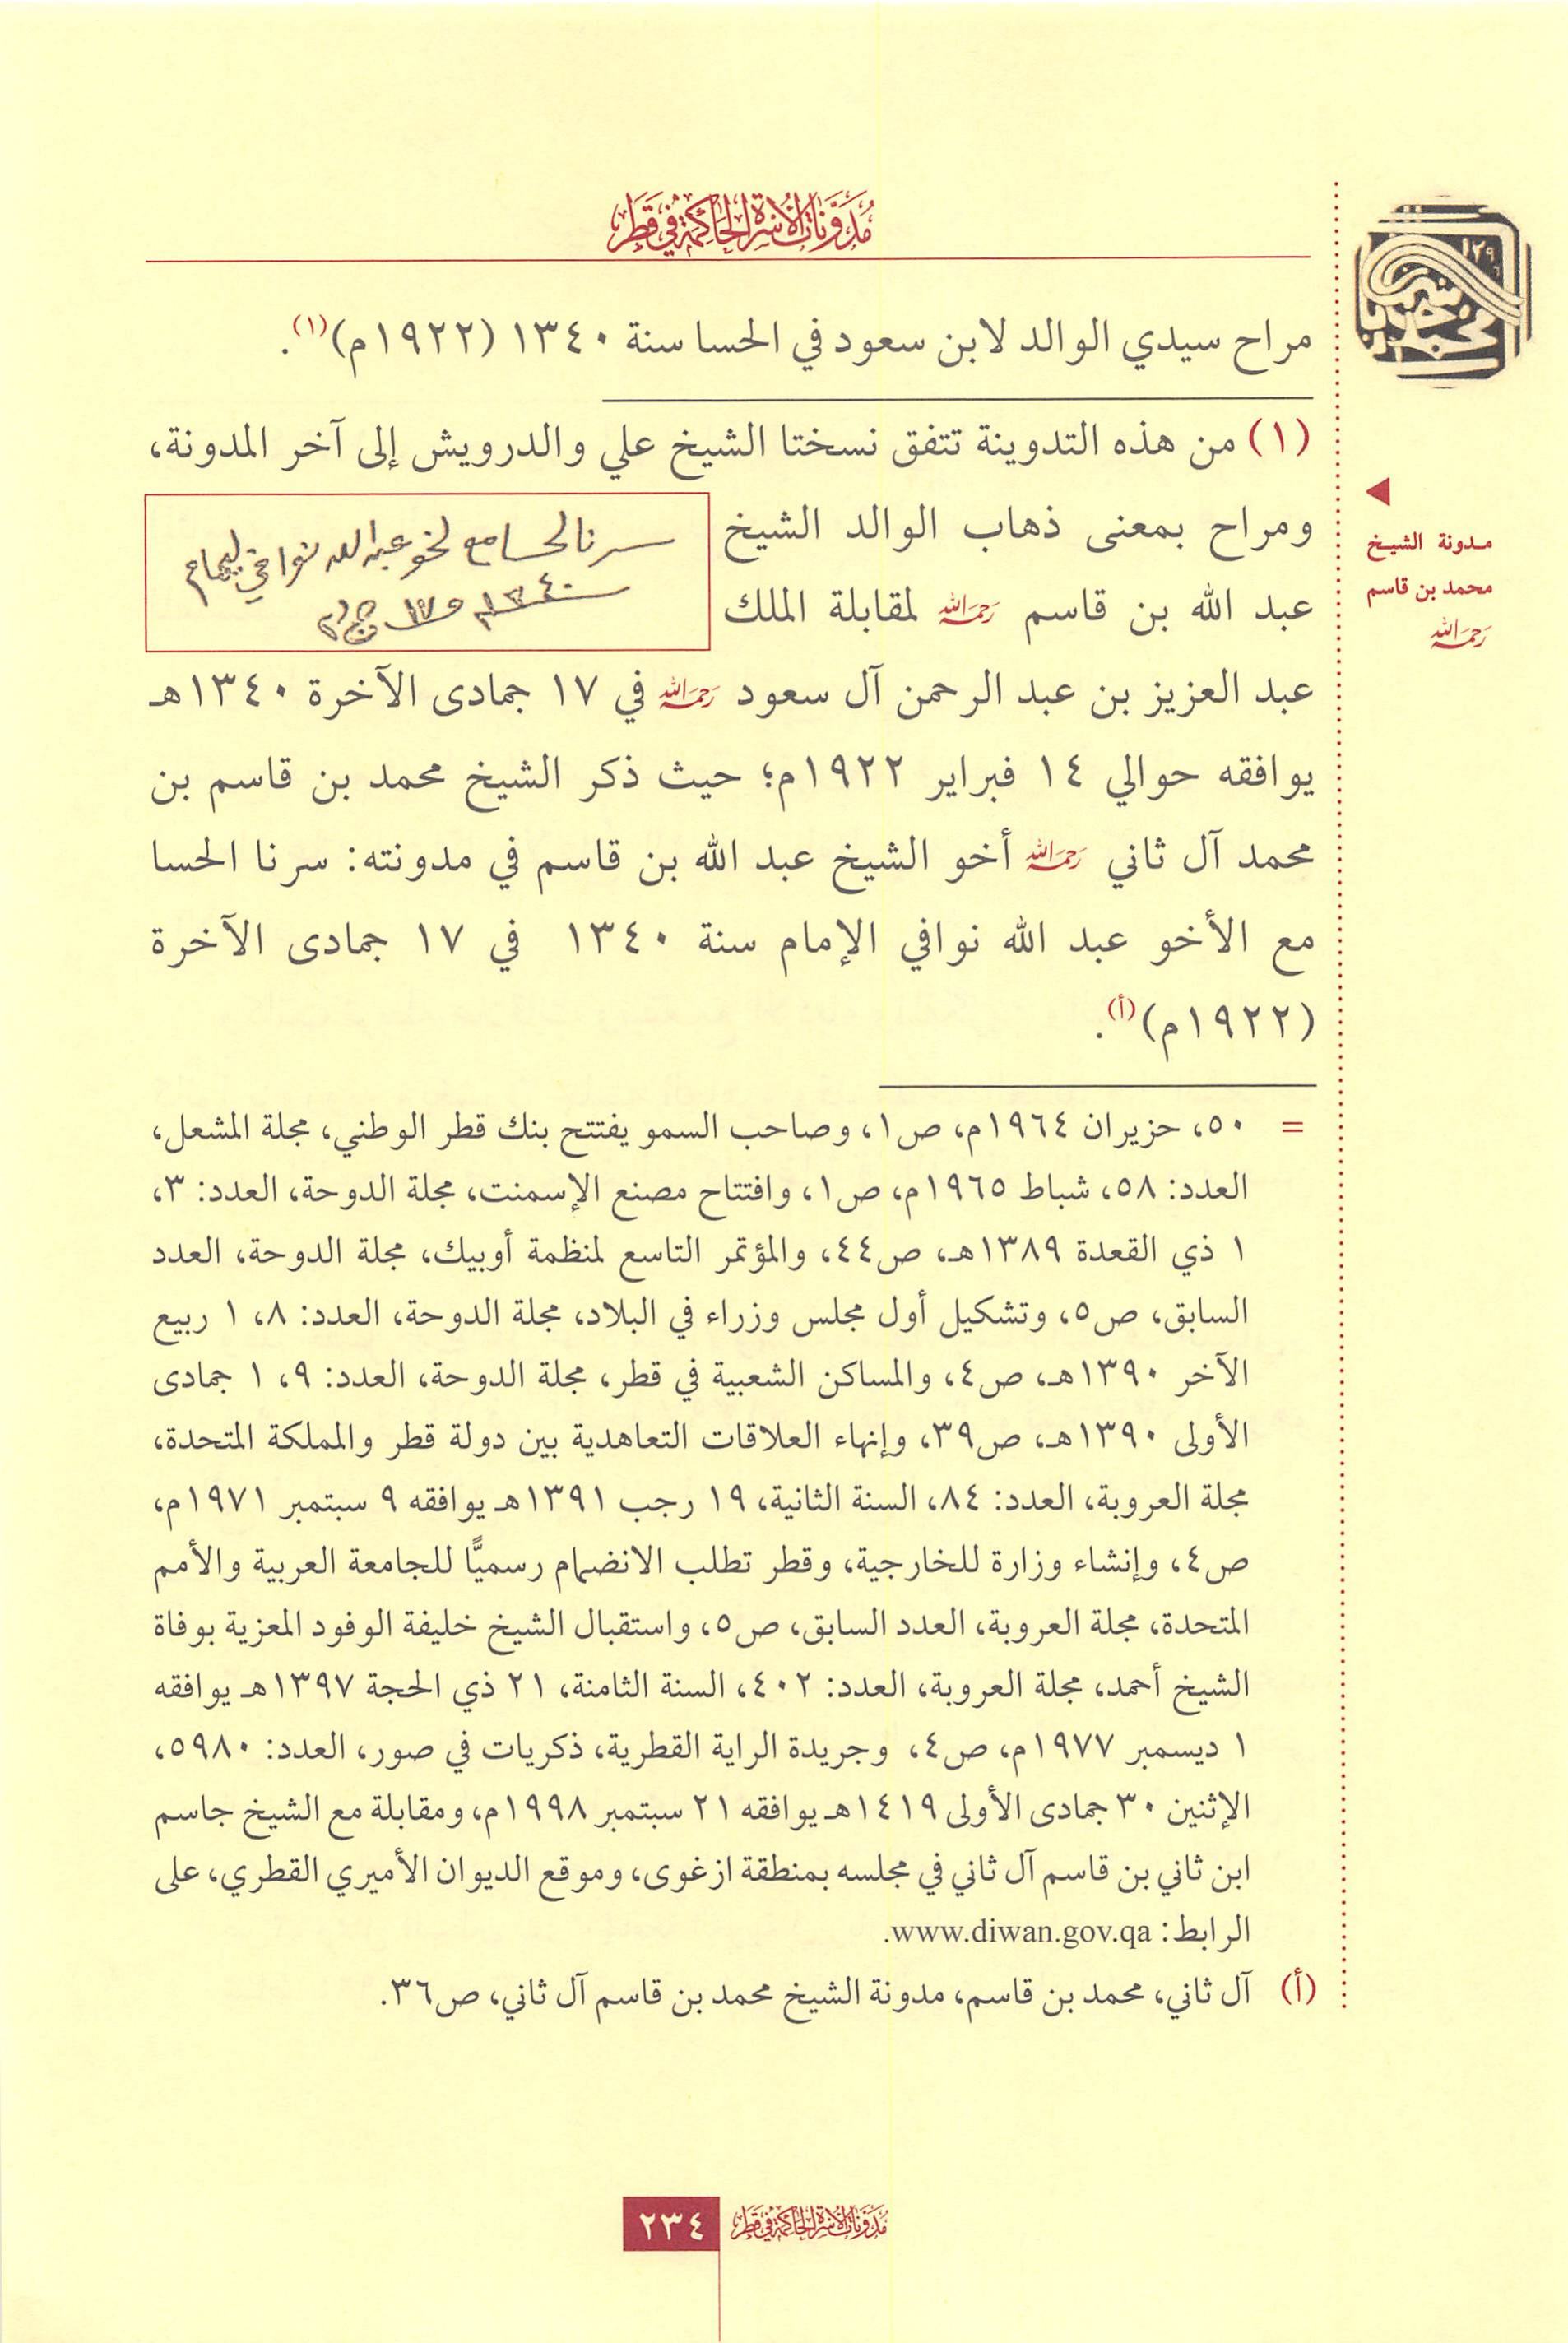 مُدَوَّنَاتُ الأُسْرَةِ الحَاكِمَةِ فِي قَطَر
مراح سيدي الوالد لابن سعود في الحسا سنة ١٣٤٠ (١٩٢٢م)(١).
(١) من هذه التدوينة تتفق نسختا الشيخ علي والدرويش إلى آخر المدونة،
ومراح بمعنى ذهاب الوالد الشيخ
عبد الله بن قاسم رَحِمَهُ اللهُ لمقابلة الملك
سرنا لحسا مع لخو عبد الله نوافي ليمام
١٣٤٠
عبد العزيز بن عبد الرحمن آل سعود رَحِمَهُ اللهُ في ١٧ جمادى الآخرة ١٣٤٠هـ
يوافقه حوالي ١٤ فبراير ١٩٢٢م؛ حيث ذكر الشيخ محمد بن قاسم بن
محمد آل ثاني رَحِمَهُ اللهُ أخو الشيخ عبد الله بن قاسم في مدونته: سرنا الحسا
مع الأخو عبد الله نوافي الإمام سنة ١٣٤٠ في ١٧ جمادى الآخرة
(١٩٢٢م)(أ).
= ٥٠، حزيران ١٩٦٤م، ص١، وصاحب السمو يفتتح بنك قطر الوطني، مجلة المشعل،
العدد: ٥٨، شباط ١٩٦٥م، ص١، وافتتاح مصنع الإسمنت، مجلة الدوحة، العدد: ٣،
١ ذي القعدة ١٣٨٩هـ، ص٤٤، والمؤتمر التاسع لمنظمة أوبيك، مجلة الدوحة، العدد
السابق، ص٥، وتشكيل أول مجلس وزراء في البلاد، مجلة الدوحة، العدد: ٨، ١ ربيع
الآخر ١٣٩٠هـ، ص٤، والمساكن الشعبية في قطر، مجلة الدوحة، العدد: ٩، ١ جمادى
الأولى ١٣٩٠هـ، ص٣٩، وإنهاء العلاقات التعاهدية بين دولة قطر والمملكة المتحدة،
مجلة العروبة، العدد: ٨٤، السنة الثانية، ١٩ رجب ١٣٩١هـ يوافقه ٩ سبتمبر ١٩٧١م،
ص٤، وإنشاء وزارة للخارجية، وقطر تطلب الانضمام رسميًّا للجامعة العربية والأمم
المتحدة، مجلة العروبة، العدد السابق، ص٥، واستقبال الشيخ خليفة الوفود المعزية بوفاة
الشيخ أحمد، مجلة العروبة، العدد: ٤٠٢، السنة الثامنة، ٢١ ذي الحجة ١٣٩٧هـ يوافقه
١ ديسمبر ١٩٧٧م، ص٤، وجريدة الراية القطرية، ذكريات في صور، العدد: ٥٩٨٠،
الإثنين ٣٠ جمادى الأولى ١٤١٩هـ يوافقه ٢١ سبتمبر ١٩٩٨م، ومقابلة مع الشيخ جاسم
ابن ثاني بن قاسم آل ثاني في مجلسه بمنطقة ازغوى، وموقع الديوان الأميري القطري، على
الرابط: www.diwan.gov.qa.
(أ) آل ثاني، محمد بن قاسم، مدونة الشيخ محمد بن قاسم آل ثاني، ص٣٦.
مدونة الشيخ
محمد بن قاسم
رَحِمَهُ اللهُ
مُدَوَّنَاتُ الأُسْرَةِ الحَاكِمَةِ فِي قَطَر
٢٣٤